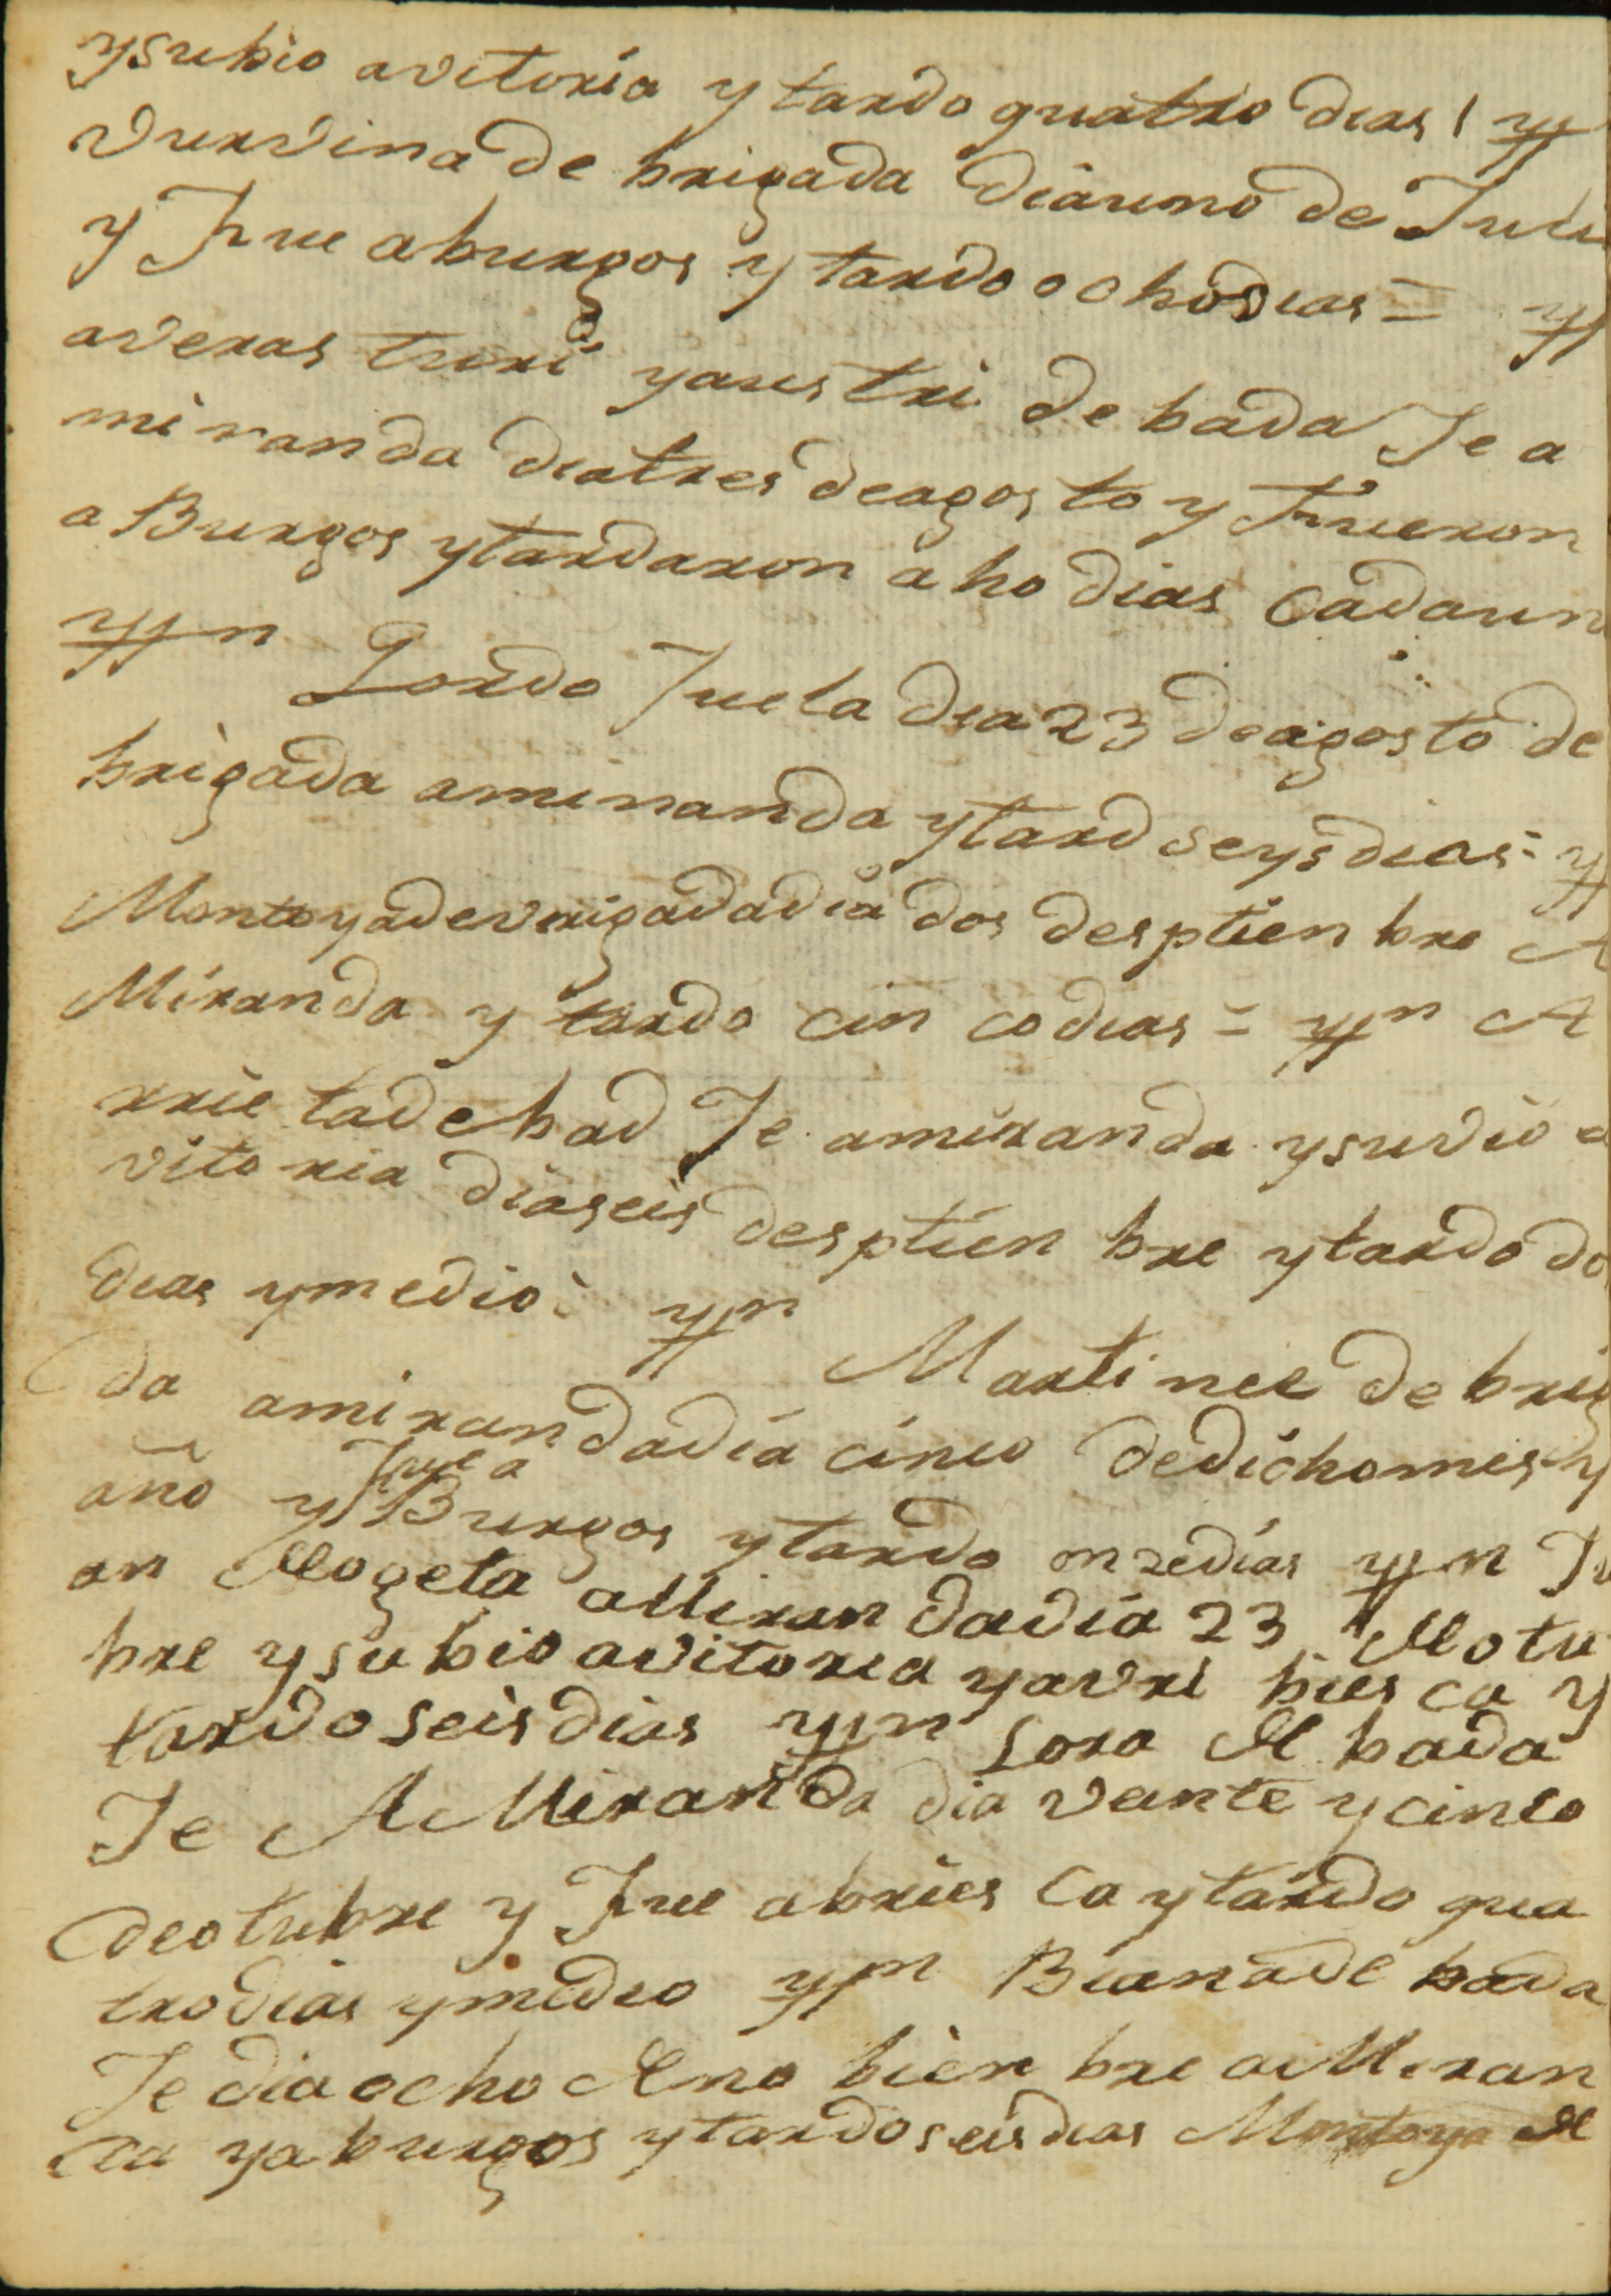 ysubio avitoria y tardo quatro dias / yt
vurvina de brigada dia uno de Juli
y Fue a burgos y tardo ocho dias = yt
averasturi yaustri de bada Je a
miranda dia tres de agosto y Fueron
a Burgos ytardaron oho dias cadaun
ytn Lordo Fue la dia 23 de agosto de
brigada amiranda ytard seys dias = yt
Montoya de vrigada dia dos desptienbre A
Miranda y tardo cin co dias = ytn A
rrie ta de bad Je amiranda ysuvio a
vitoria dia seis desptien bre ytardo do
dias ymedio = ytn Martinee de brig
da amiranda dia cinco de dicho mes y
año y Fue a Burgos ytardo onze dias ytn Ju
an Mogeta a Miranda dia 23 Motu
bre ysubio avitoria yavri biesca y
tardo seis dias ytn Sora de bada
Je A Miranda dia veinte ycinco
deotubre y Fue abries ca ytardo qua
tro dias ymedio ytn Biana de bada
Je dia ocho de no bien bre a Miran
da ya burgos ytardo seis dias Montoya de